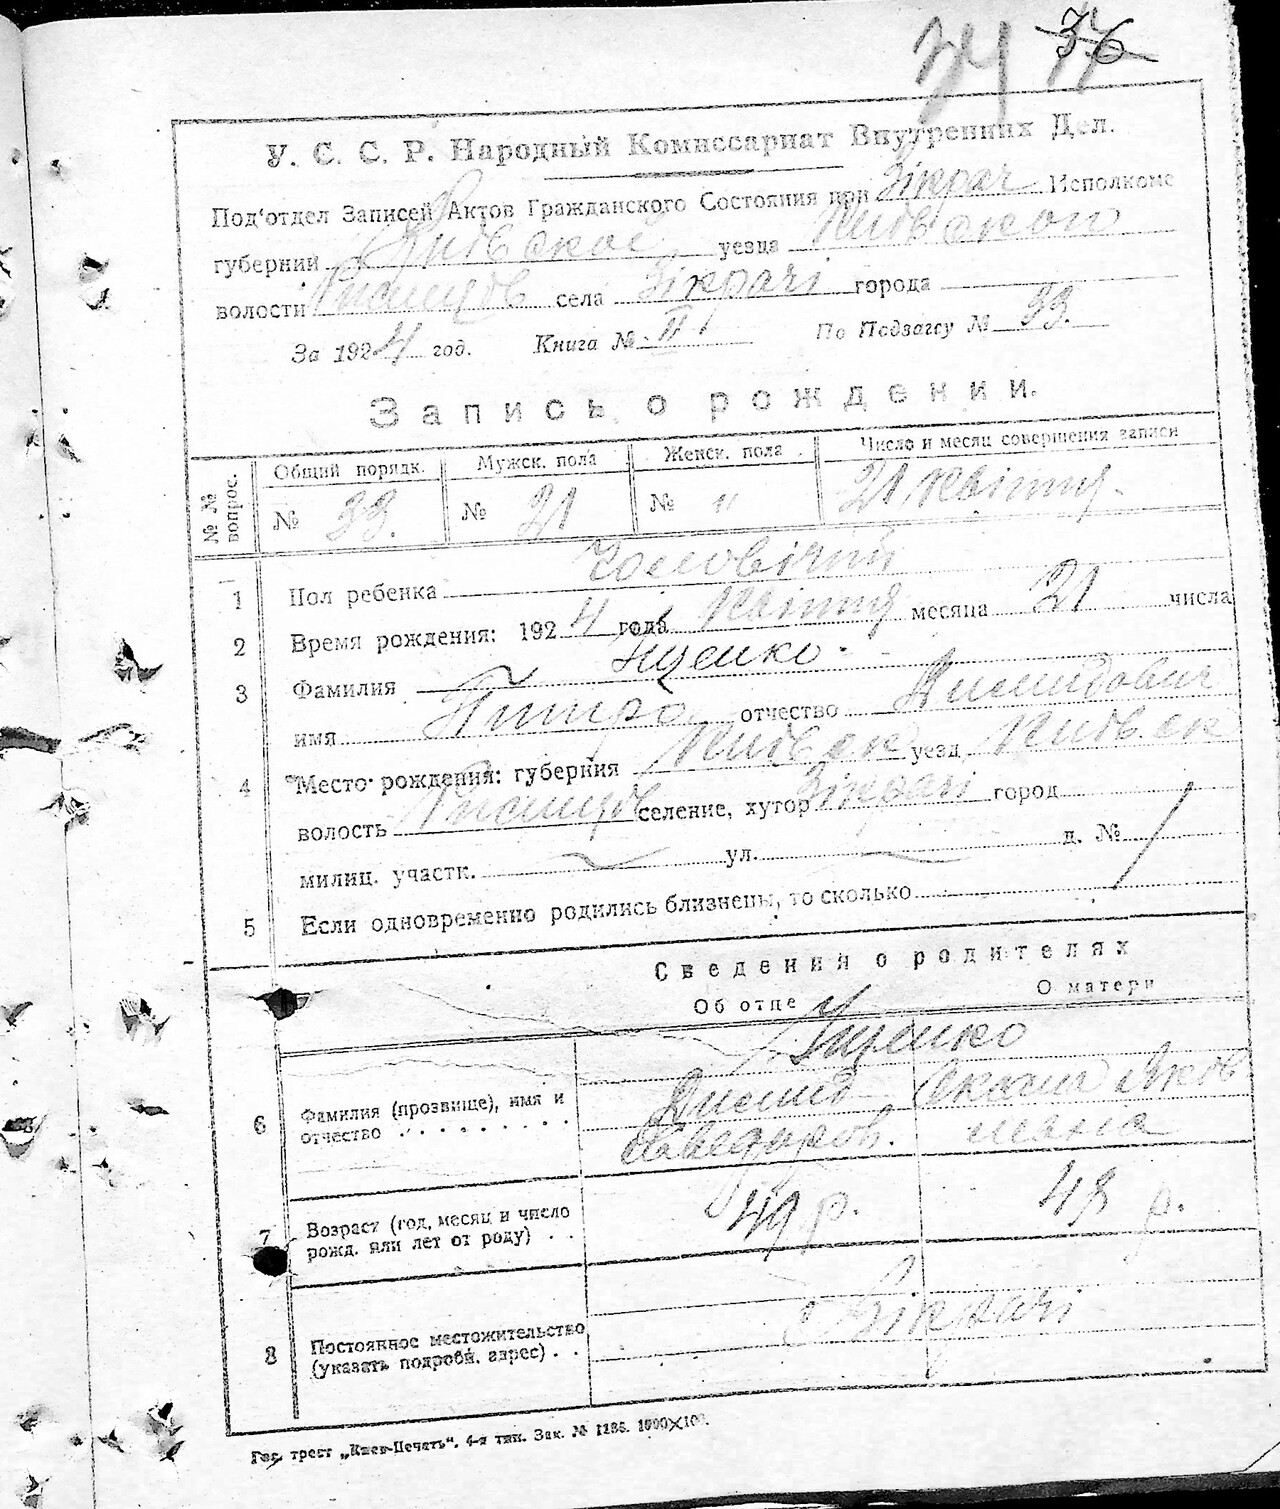 34 36
У. С. С. Р. Народный Комиссариат Внутренних Дел.
Под'отдел Записей Актов Гражданского Состояния при Зікрач Исполкоме
губернии Київської уезда Київской
волости села Зікрачі города
За 1924 год. Книга № II По Подзагсу № 33.
Запись о рождении.
№ № вопрос. Общий порядк. Мужск. пола Женск. пола Число и месяц совершения записи
№ 33. № 21 № " 21 Квітня
1 Пол ребенка Чоловічий
2 Время рождения: 1924 года Квітня месяца 21 числа
3 Фамилия Іщенко
имя Питро отчество
4 Место рождения: губерния Київск уезд Київск
волость селение, хутор Зікрачі город
милиц. участк. ул. д. №
5 Если одновременно родились близнецы, то сколько
Сведения о родителях
Об отце О матери
Іщенко
6 Фамилия (прозвище), имя и отчество
7 Возраст (год, месяц и число рожд. или лет от роду) 49 р. 48 р.
8 Постоянное местожительство (указать подробн. адрес) с Зікрачі
Гос. трест „Киев-Печать“. 4-я тип. Зак. № 1286. 1000×100.